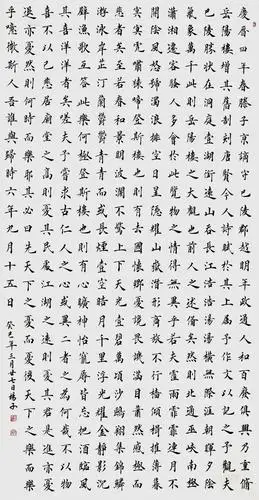 慶曆四年春滕子京謫守巴陵郡越明年政通人和百廢俱興乃重修
岳陽樓增其舊制刻唐賢今人詩賦於其上屬予作文以記之予觀夫
巴陵勝狀在洞庭壹湖銜遠山吞長江浩浩湯湯橫無際涯朝暉夕陰
氣象萬千此則岳陽樓之大觀也前人之述備矣然則北通巫峽南極
瀟湘遷客騷人多會於此覽物之情得無異乎若夫霪雨霏霏連月不
開陰風怒號濁浪排空日星隱耀山嶽潛形商旅不行檣傾楫摧薄暮
冥冥虎嘯猿啼登斯樓也則有去國懷鄉憂讒畏譏滿目蕭然感極而
悲者矣至若春和景明波瀾不驚上下天光壹碧萬頃沙鷗翔集錦鱗
游泳岸芷汀蘭郁郁青青而或長煙壹空皓月千里浮光躍金靜影沉
璧漁歌互答此樂何極登斯樓也則有心曠神怡寵辱皆忘把酒臨風
其喜洋洋者矣嗟夫予嘗求古仁人之心或異二者之為何哉不以物
喜不以己悲居廟堂之高則憂其民處江湖之遠則憂其君是進亦憂
退亦憂然則何時而樂耶其必曰先天下之憂而憂後天下之樂而樂
乎噫微斯人吾誰與歸時六年九月十五日
癸巳年三月廿七日楊子